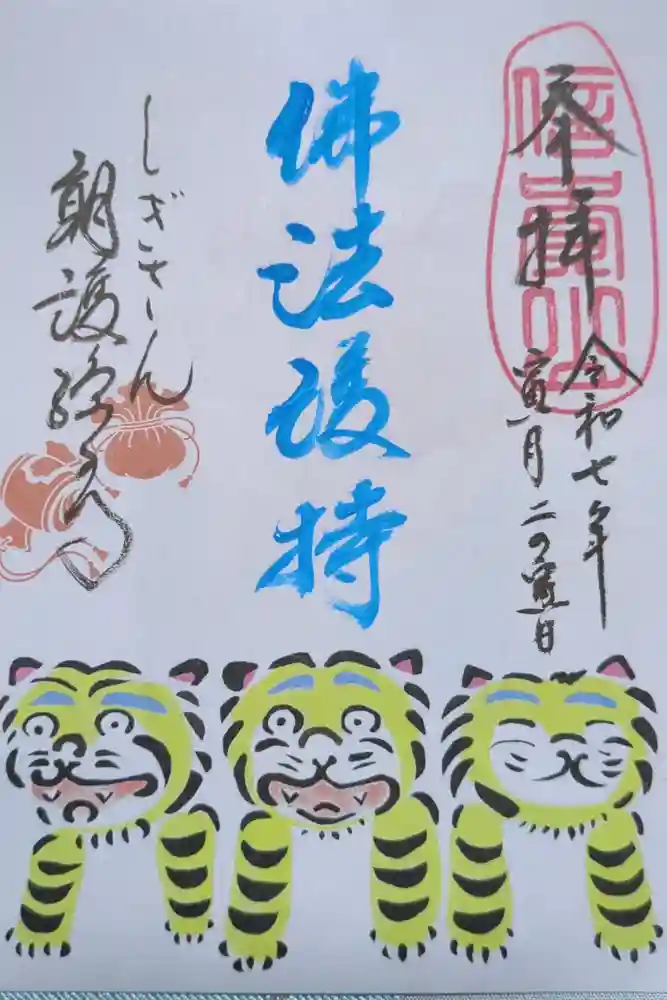 奉拝
信貴山
令和七年
寅月二の寅日
佛法護持
しぎさん
朝護孫子寺